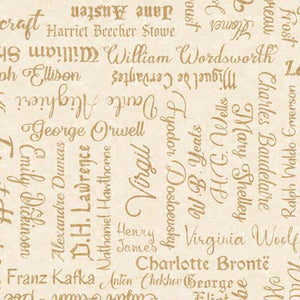 craft
Jane Austen
Harriet Beecher Stowe
William Sh
William Wordsworth
ph Ellison
Miguel de Cervantes
Dante Alighieri
George Orwell
Emily Dickinson
Alexandre Dumas
D.H. Lawrence
Nathaniel Hawthorne
Virgil
Fyodor Dostoevsky
W.B. Yeats
H.G. Wells
Mary Shelley
Charles Baudelaire
Ralph Waldo Emerson
Henry
James
Virginia Woolf
Charlotte Brontë
Franz Kafka
Anton Chekhov
George